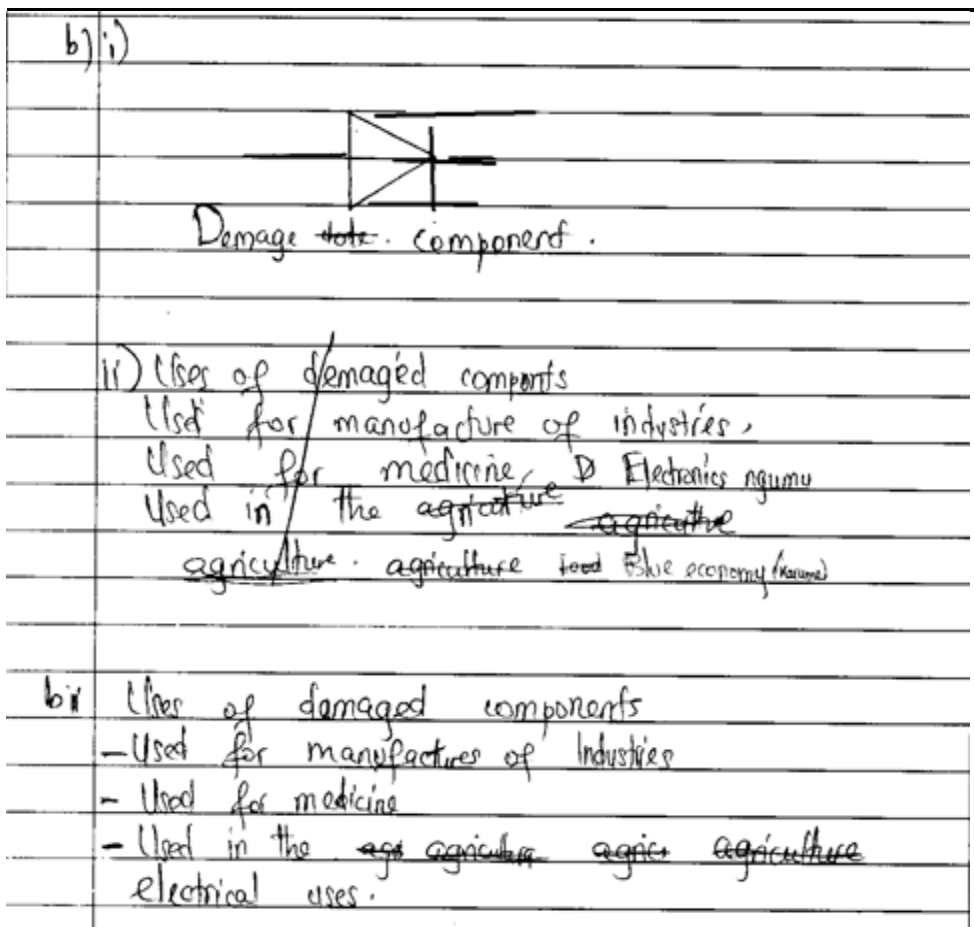 b) i)
Demage component.
ii) Uses of demaged componts
Used for manufacture of industries,
Used for medicine, Electronics ngumu
Used in the agriculture
agriculture. agriculture food Blue economy (Karume)
bii Uses of damaged components
- Used for manufactures of Industries
- Used for medicine
- Used in the agriculture
electrical uses.